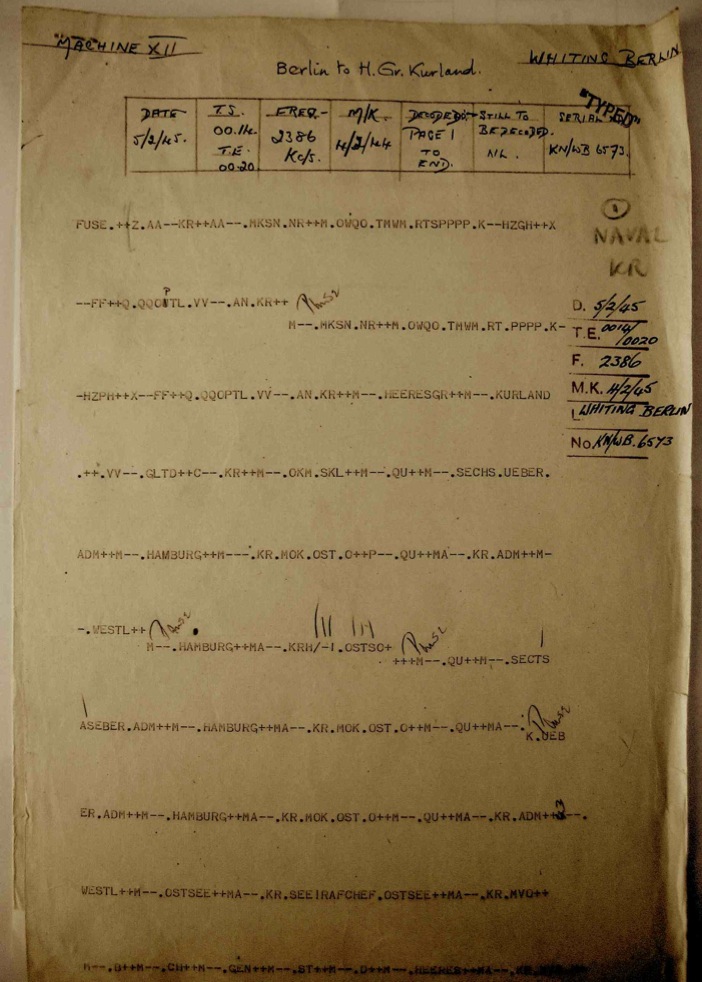 MACHINE XII
WHITING BERLIN
Berlin to H.Gr. Kurland.
"TYPED"
DATE T.S. FREQ. M/K. DECODED STILL TO SERIAL
5/2/45. 00.14. 2386 4/2/44 PAGE 1 BE DECODED. KN/WB 6573.
T.E. Kc/s. TO NIL.
00.20 END.
FUSE.++Z.AA--KR++AA--.MKSN.NR++M.OWQO.TMWM.RTSPPPP.K--HZGH++X
NAVAL
KR
--FF++Q.QQOUTL.VV--.AN.KR++
P
M--.MKSN.NR++M.OWQO.TMWM.RT.PPPP.K-
D. 5/2/45
T.E. 0014/0020
F. 2386
M.K. 4/2/45
WHITING BERLIN
No. KN/WB.6573
-HZPH++X--FF++Q.QQOPTL.VV--.AN.KR++M--.HEERESGR++M--.KURLAND
.++.VV--.GLTD++C--.KR++M--.OKM.SKL++M--.QU++M--.SECHS.UEBER.
ADM++M--.HAMBURG++M---.KR.MOK.OST.O++P--.QU++MA--.KR.ADM++M-
-.WESTL++
M--.HAMBURG++MA--.KRH/-I.OSTSO+
+++M--.QU++M--.SECTS
ASEBER.ADM++M--.HAMBURG++MA--.KR.MOK.OST.O++M--.QU++MA--.
K.UEB
ER.ADM++M--.HAMBURG++MA--.KR.MOK.OST.O++M--.QU++MA--.KR.ADM++--.
WESTL++M--.OSTSEE++MA--.KR.SEEIRAFCHEF.OSTSEE++MA--.KR.MVO++
M--.B++M--.CH++M--.GEN++M--.ST++M--.D++M--.HEERES++MA--.KR